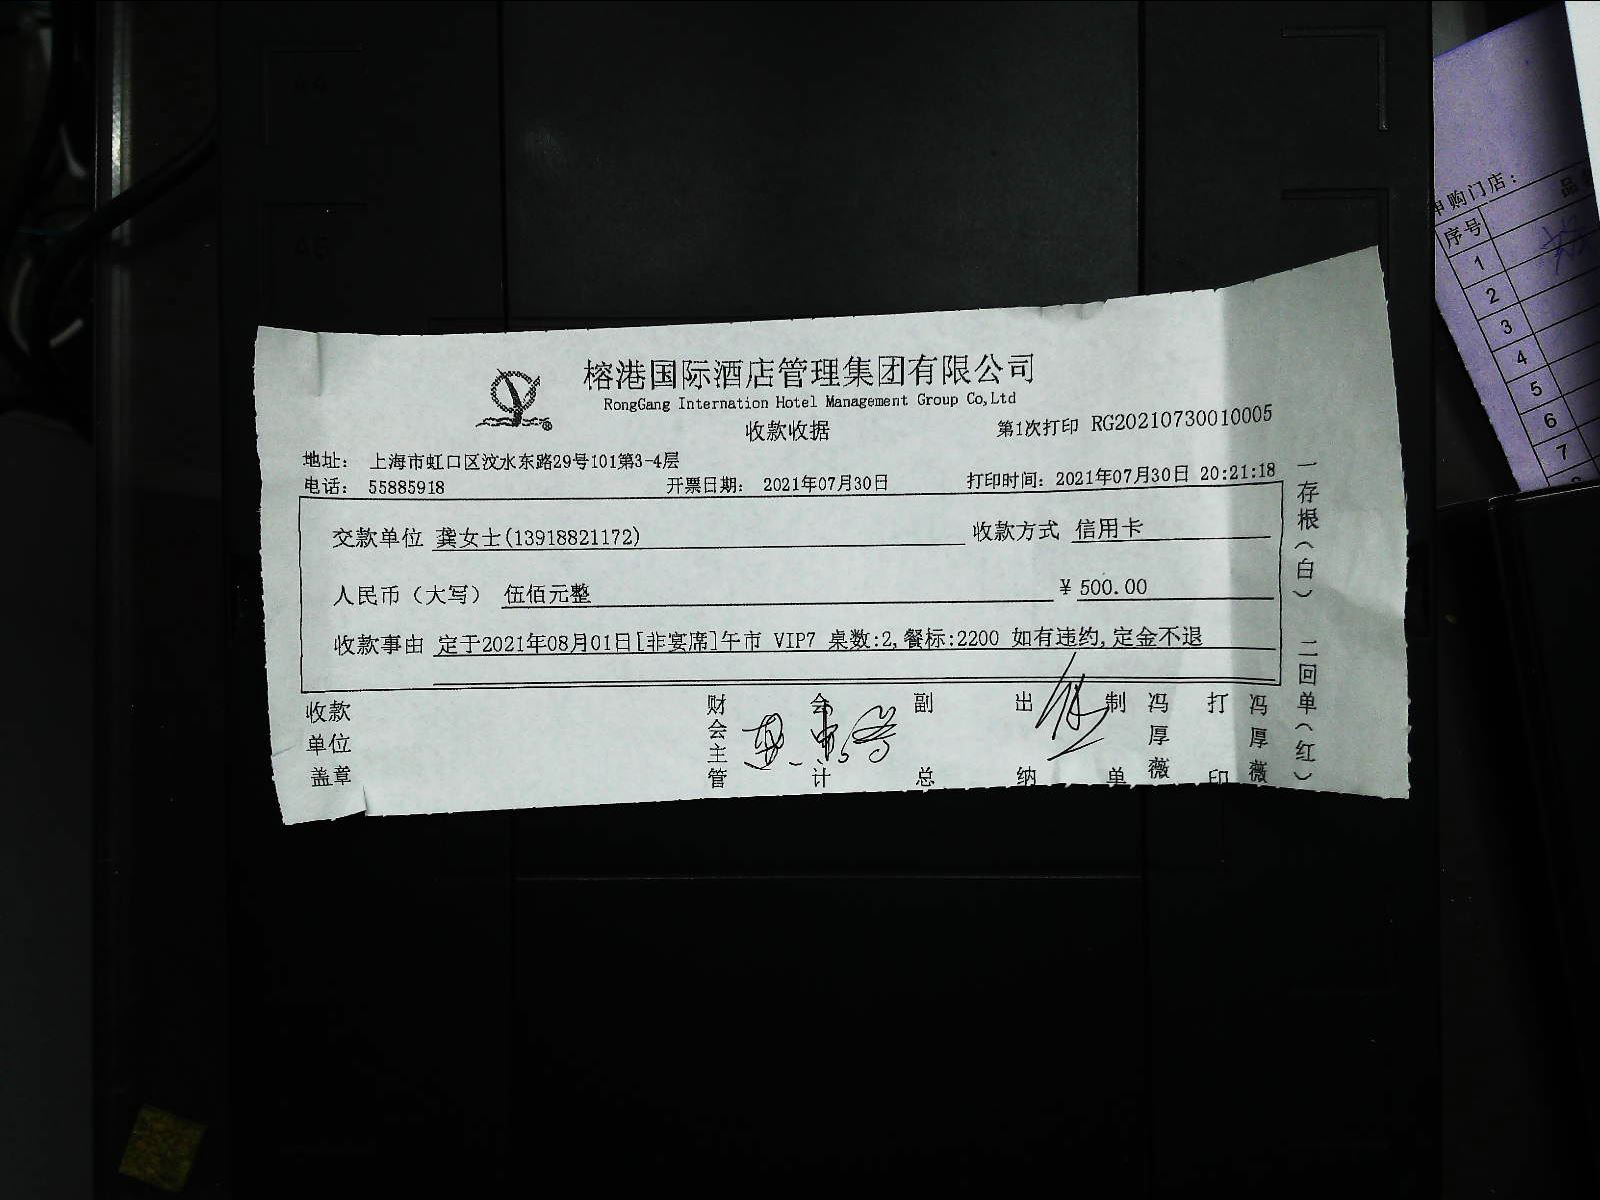 榕港国际酒店管理集团有限公司
RongGang Internation Hotel Management Group Co,Ltd
收款收据
第1次打印 RG20210730010005
地址： 上海市虹口区汶水东路29号101第3-4层
电话： 55885918 开票日期： 2021年07月30日 打印时间：2021年07月30日 20:21:18
交款单位 龚女士(13918821172) 收款方式 信用卡
人民币（大写） 伍佰元整 ¥ 500.00
收款事由 定于2021年08月01日[非宴席]午市 VIP7 桌数:2,餐标:2200 如有违约,定金不退
收款单位盖章
财会主管
会计
副总
出纳
制单
冯厚薇
打印
冯厚薇
一存根（白） 二回单（红）
申购门店：
序号
品
1
2
3
4
5
6
7
A5